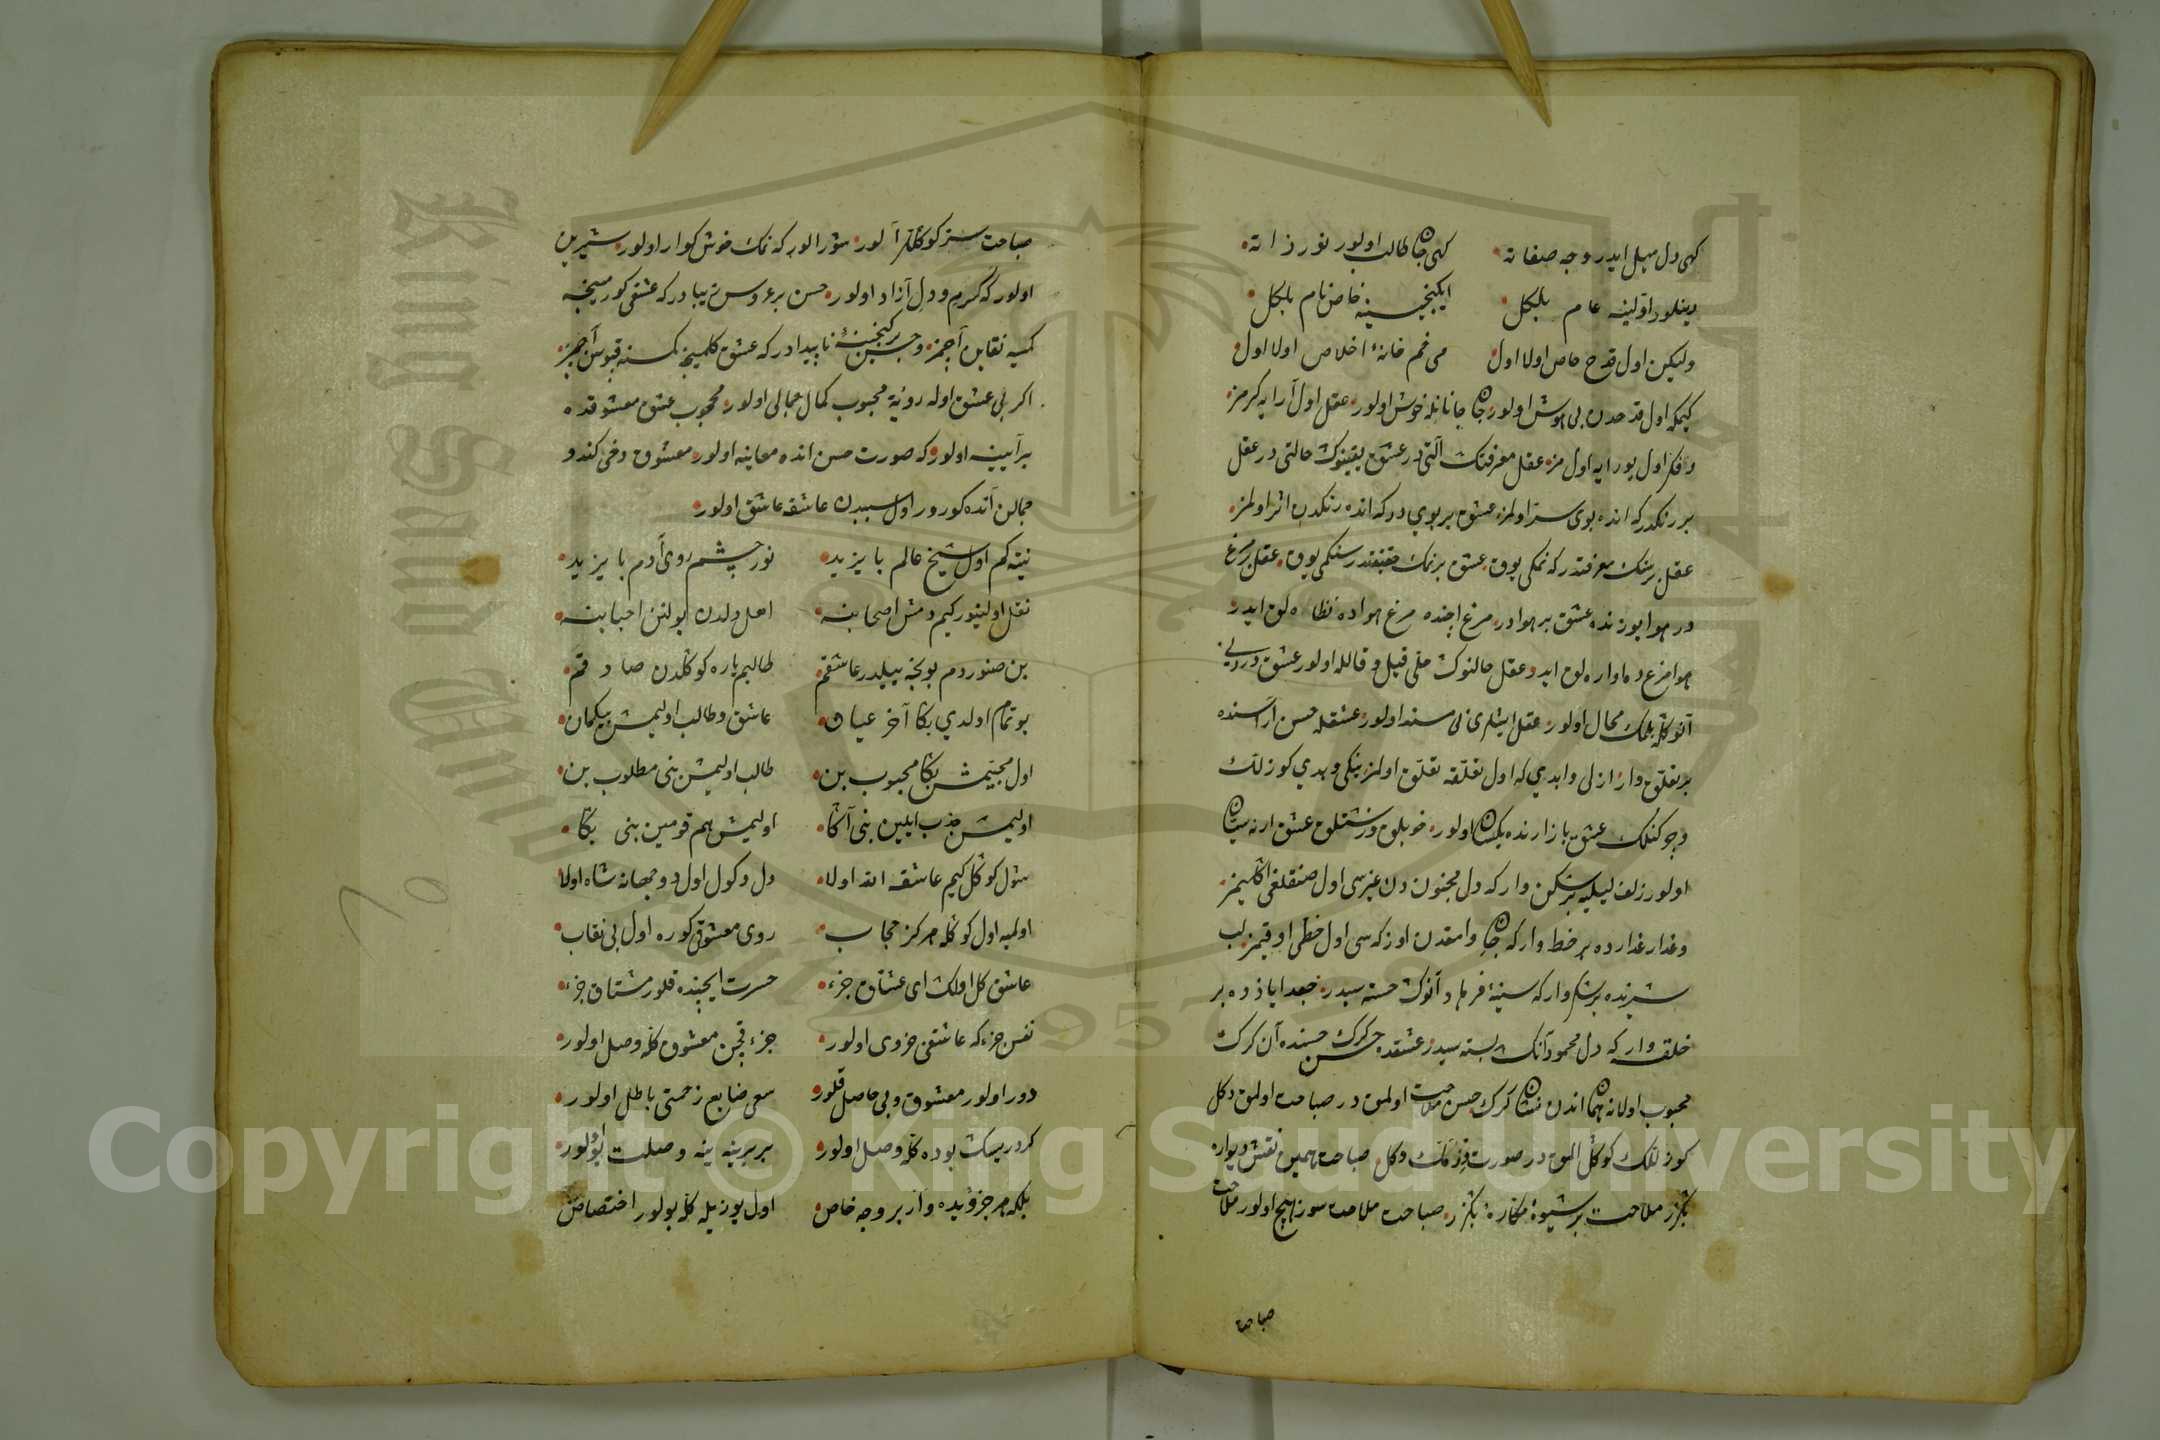 کهی دل میل ایدر وجه صفاته کهی جان طالب اولور نور ذاته
دینلور اولینه عام بلبکل ایکنجیسینه خاص نام بلبکل
ولیکن اول قدح خاص اولا اول می خم خانهٔ اخلاص اولا اول
کیمکه اول قدحدن بی هوش اولور جان جانانله خوش اولور عقل اول آرایه کرمز
و فکر اول یورایه اول مز عقل معرفتک آلتی در عشق یقینوک حالتی در عقل
بر رنکدر که انده بوی سر اولمز عشق بر بوی در که انده رنکدن اثر اولمز
عقل بر سنک معرفتدر که نمکی یوق عشق بر نمک حقیقتدر سنکی یوق عقل بر مرغ
در هوا یوزنده عشق بر هوادر مرغ ایچنده مرغ هواده نظاره لق ایدر
هوا مرغده اواره لق ایدر عقل حالنوک حلی قیل و قالله اولور عشق دردینی
آنوکله بلمک محال اولور عقل ایشلری لی مسند اولور عشقله حسن آراسنده
بر تعلق وار ازلی و ابدی که اول تعلقه تعلق اولمز نیکی و بدی کوزللک
و چرکنلک عشق بازارنده یکسان اولور خوبلق و زشتلق عشق ارنه سیان
اولور زلف لیلیه بر شکن وار که دل مجنون دن غیری اول صنقلغی اکلیمز
و عذار عذراده بر خط وار که جان وامقدن اوزکه سی اول خطی اوقیمز لب
شیرنده بر شکر وار که سینهٔ فرهاد آنوک خسته سیدر جعد ایازده بر
خلقه وار که دل محمود آنک بسته سیدر عشقده حسن کرک حسنده آن کرک
محبوب اولانه همان اندن نشان کرک حسن ملاحت اولمق در صباحت اولمق دکل
کوزللک کوکل المق در صورت دزمک دکل صباحت همین نقش دیواره
بکزر ملاحت بر شیوهٔ مکاره بکزر صباحت ملاحت سوز هیچ اولور ملاحت
صباحت
صباحت سز کوکللر آلور شور الور که نمک خوش کوار اولور شیرین
اولور که کرم و دل آزاد اولور حسن بر عروس زیبادر که عشقی کورمیخه
کمسیه نقابن آچمز و حسن بر کنجینهٔ ناپیدادر که عشق کلمیخه کمسنه قپوسن آچمز
اکر بی عشق اوله روئیه محبوب کمال جمالی اولور محبوب عشق معشوقده
بر آیینه اولور که صورت حسن انده معاینه اولور معشوق دخی کندو
جمالن آنده کورور اول سببدن عاشقه عاشق اولور
نیته کم اول شیخ عالم بایزید نور چشم روی آدم بایزید
نقل اولینور کیم دمش اصحابنه اهل دلدن بولنن احبابنه
بن صنوردم بونجه ییلدر عاشقم طالبم یاره کوکلدن صادقم
بو تمام اولدی بکا آخر عیان عاشق و طالب اولیمش بیکمان
اول محبیمش بکا محبوب بن طالب اولیمش بنی مطلوب بن
اولیمش جذب ایلین بنی آنکا اولیمش هم قومین بنی بکا
شول کوکل کیم عاشقه الله اولا دل دکول اول دو جهانه شاه اولا
اولمیه اول کوکله هرکز حجاب روی معشوقی کوره اول بی نقاب
عاشق کل اولک ای عشاق جزء حسرت ایچنده قلور مشتاق جزء
نفس جزء که عاشقی جزوی اولور جزء قچن معشوق کله وصل اولور
دور اولور معشوق و بی حاصل قلور سعی ضایع زحمتی باطل اولور
کردر یسک بوده کله وصل اولور بربرینه ینه وصلت بولور
بلکه هر جزؤیده وآر بر وجه خاص اول یوزیله کله بولور اختصاص
Copyright © King Saud University
King Saud University
1957